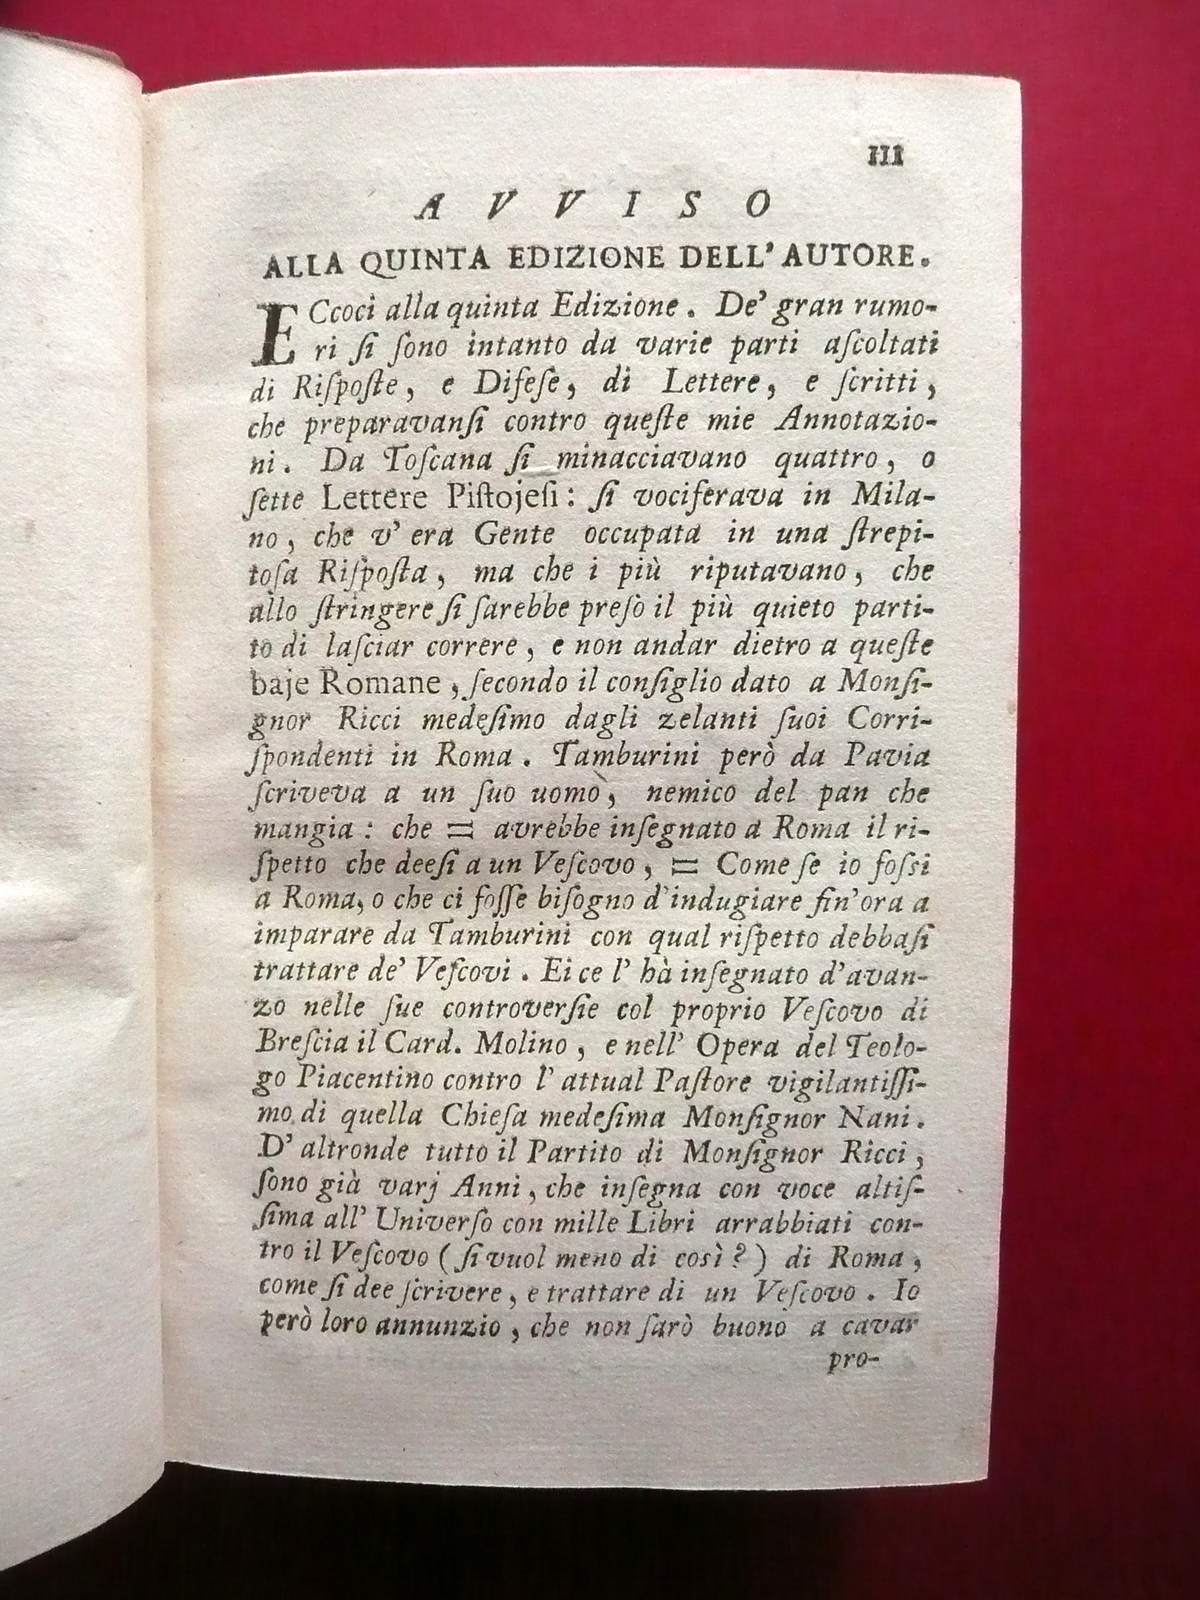 III
AVVISO
ALLA QUINTA EDIZIONE DELL' AUTORE.
ECcoci alla quinta Edizione. De' gran rumo-
ri ſi ſono intanto da varie parti aſcoltati
di Riſpoſte, e Difeſe, di Lettere, e ſcritti,
che preparavanſi contro queſte mie Annotazio-
ni. Da Toſcana ſi minacciavano quattro, o
ſette Lettere Piſtojeſi: ſi vociferava in Mila-
no, che v' era Gente occupata in una ſtrepi-
toſa Riſpoſta, ma che i più riputavano, che
allo ſtringere ſi ſarebbe preſo il più quieto parti-
to di laſciar correre, e non andar dietro a queſte
baje Romane, ſecondo il conſiglio dato a Monſi-
gnor Ricci medeſimo dagli zelanti ſuoi Corri-
ſpondenti in Roma. Tamburini però da Pavia
ſcriveva a un ſuo uomo, nemico del pan che
mangia: che = avrebbe inſegnato a Roma il ri-
ſpetto che deeſi a un Veſcovo, = Come ſe io foſſi
a Roma, o che ci foſſe biſogno d'indugiare fin'ora a
imparare da Tamburini con qual riſpetto debbaſi
trattare de' Veſcovi. Ei ce l' hà inſegnato d'avan-
zo nelle ſue controverſie col proprio Veſcovo di
Breſcia il Card. Molino, e nell' Opera del Teolo-
go Piacentino contro l' attual Paſtore vigilantiſſi-
mo di quella Chieſa medeſima Monſignor Nani.
D' altronde tutto il Partito di Monſignor Ricci,
ſono già varj Anni, che inſegna con voce altiſ-
ſima all' Univerſo con mille Libri arrabbiati con-
tro il Veſcovo (ſi vuol meno di così?) di Roma,
come ſi dee ſcrivere, e trattare di un Veſcovo. Io
però loro annunzio, che non ſarò buono a cavar
pro-